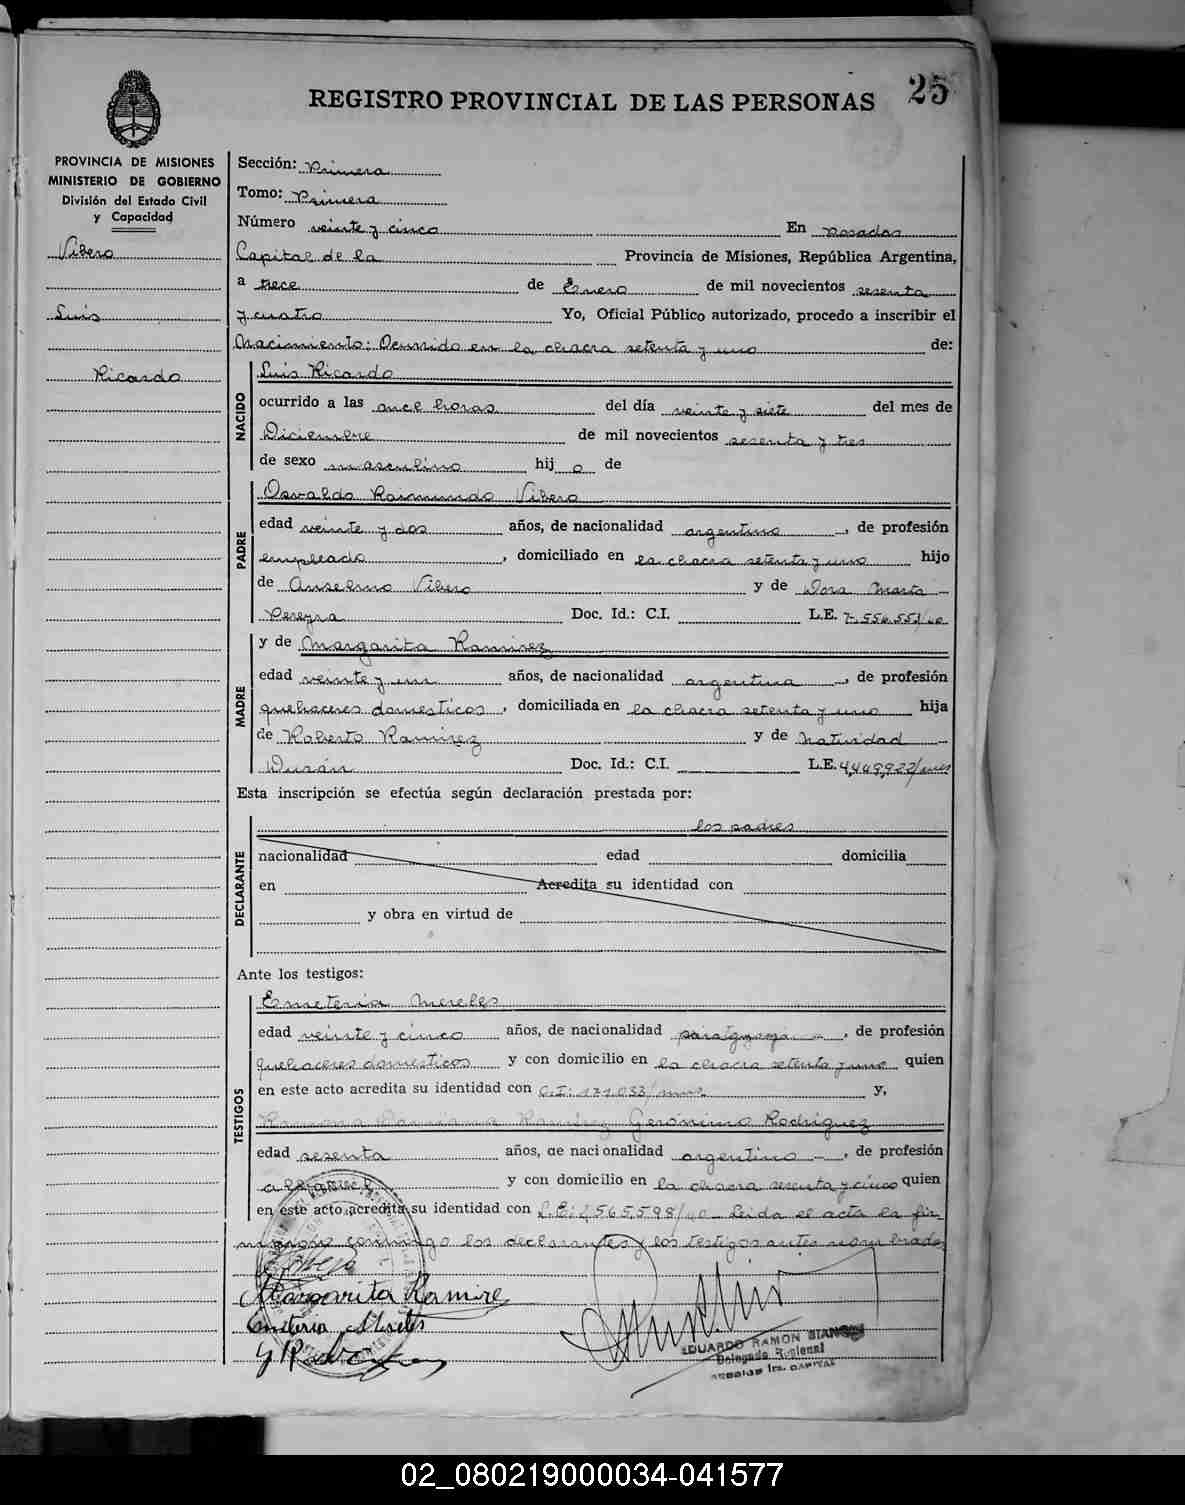 25
REGISTRO PROVINCIAL DE LAS PERSONAS
PROVINCIA DE MISIONES
MINISTERIO DE GOBIERNO
División del Estado Civil
y Capacidad
Vibero
Luis
Ricardo
Sección: Primera
Tomo: Primera
Número veinte y cinco En Posadas
Capital de la Provincia de Misiones, República Argentina,
a trece de Enero de mil novecientos sesenta
y cuatro Yo, Oficial Público autorizado, procedo a inscribir el
Nacimiento: Ocurrido en la chacra setenta y uno de:
NACIDO
Luis Ricardo
ocurrido a las once horas del día veinte y siete del mes de
Diciembre de mil novecientos sesenta y tres
de sexo masculino hij o de
PADRE
Osvaldo Raimundo Vibero
edad veinte y dos años, de nacionalidad argentino, de profesión
empleado, domiciliado en la chacra setenta y uno hijo
de Anselmo Vibero y de Dora Marta
Pereyra Doc. Id.: C.I. L.E. 7.556.551/
MADRE
y de Margarita Ramirez
edad veinte y un años, de nacionalidad argentina, de profesión
quehaceres domesticos, domiciliada en la chacra setenta y uno hija
de Roberto Ramirez y de Natividad
Durán Doc. Id.: C.I. L.E. 4,469,922/
Esta inscripción se efectúa según declaración prestada por:
DECLARANTE
los padres
nacionalidad edad domicilia
en Acredita su identidad con
y obra en virtud de
Ante los testigos:
TESTIGOS
Emeteria Mereles
edad veinte y cinco años, de nacionalidad paraguaya, de profesión
quehaceres domesticos y con domicilio en la chacra setenta y uno quien
en este acto acredita su identidad con C.I: 171.033/ y,
Ramona Ramirez Gerónimo Rodriguez
edad sesenta años, de nacionalidad argentino, de profesión
y con domicilio en la chacra sesenta y cinco quien
en este acto acredita su identidad con L.E: 2,565,598/ Leida el acta la fir-
man conmigo los declarantes y los testigos antes nombrados
Margarita Ramire
Emiteria Mereles
EDUARDO RAMON BIANCHI
Delegado Regional
POSADAS 1ra. CAPITAL
02_080219000034-041577